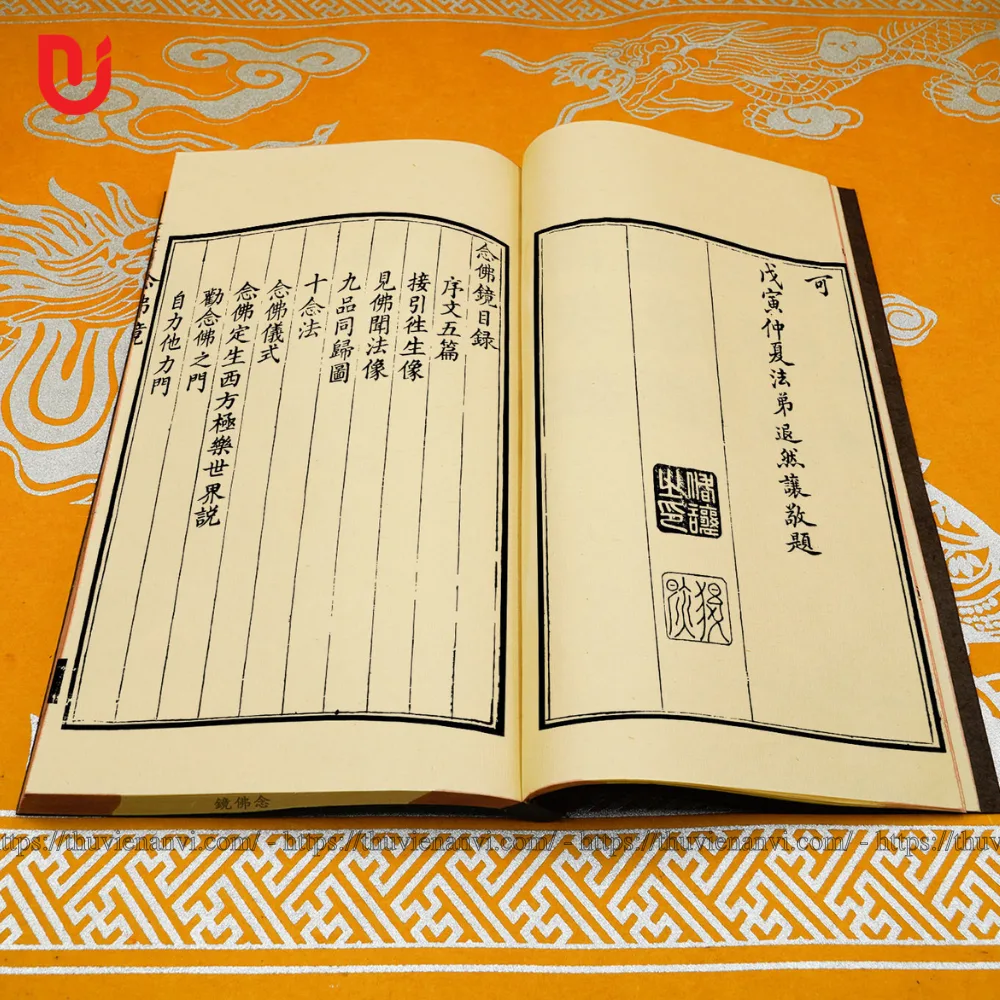 可
戊寅仲夏法弟退然讓敬題
念佛鏡目録
序文五篇
接引徃生像
見佛聞法像
九品同歸圖
十念法
念佛儀式
念佛定生西方極樂世界説
勸念佛之門
自力他力門
念佛鏡
念佛鏡
https://thuvienanvi.com/ - https://thuvienanvi.com/ - https://thuvienanvi.com/ - https://thuv